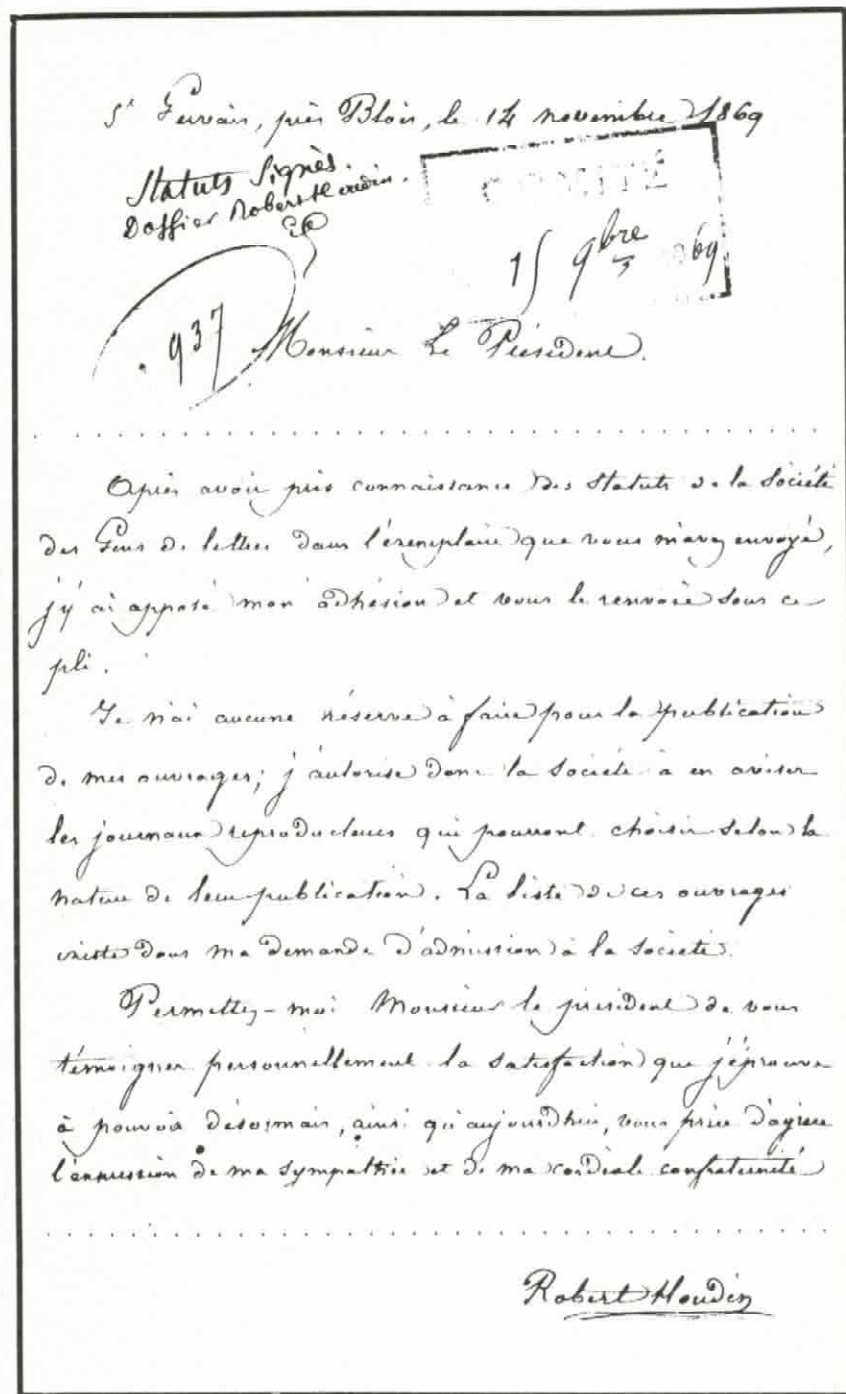 St Gervais, près Blois, le 14 novembre 1869
Statuts signés.
Dossier Robert Houdin.
COMITÉ
15 9bre 69
937
Monsieur Le Président.
Après avoir pris connaissance des statuts de la Société
des Gens de lettres dans l'exemplaire que vous m'avez envoyé,
j'y ai apposé mon adhésion et vous le renvoie sous ce
pli.
Je n'ai aucune réserve à faire pour la publication
de mes ouvrages; j'autorise donc la société à en aviser
les journaux reproducteurs qui pourront choisir selon la
nature de leur publication. La liste de ces ouvrages
existe dans ma demande d'admission à la société.
Permettez-moi Monsieur le président de vous
témoigner personnellement la satisfaction que j'éprouve
à pouvoir désormais, ainsi qu'aujourdhui, vous prier d'agréer
l'expression de ma sympathie et de ma cordiale confraternité
Robert Houdin